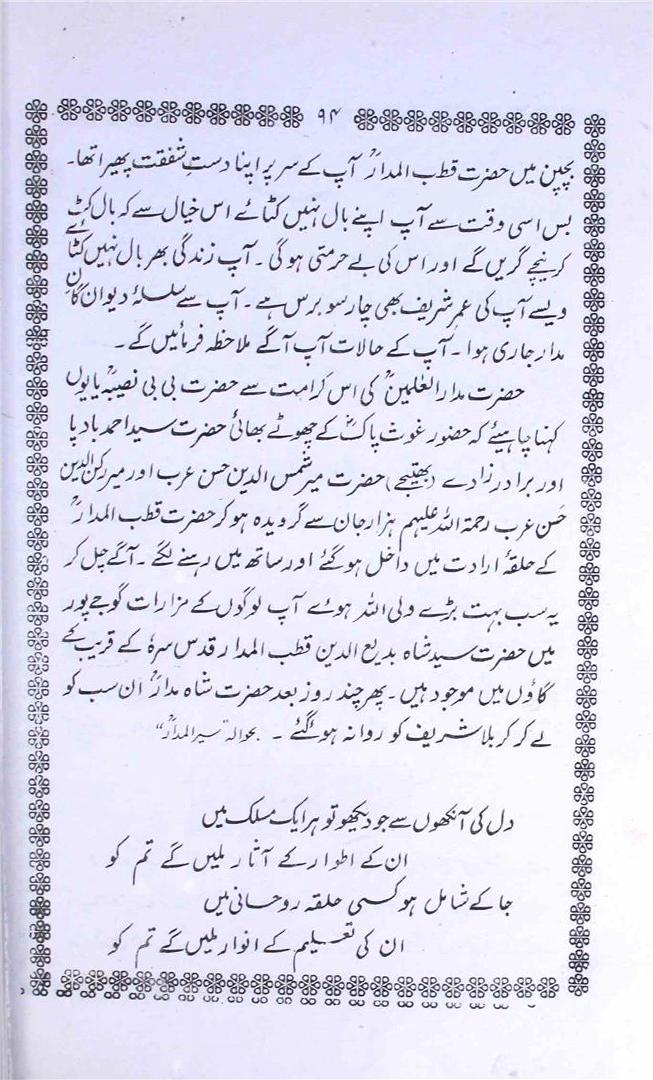 ۹۴
بچپن میں حضرت قطب المدارؒ آپ کے سر پر اپنا دستِ شفقت پھیرا تھا۔
بس اسی وقت سے آپ اپنے بال نہیں کٹائے اس خیال سے کہ بال کٹ
کر نیچے گریں گے اور اس کی بے حرمتی ہوگی ۔ آپ زندگی بھر بال نہیں کٹائے
ویسے آپ کی عمر شریف بھی چار سو برس ہے ۔ آپ سے سلسلۂ دیوان گان
مدار جاری ہوا ۔ آپ کے حالات آپ آگے ملاحظہ فرمائیں گے ۔
حضرت مدار العٰلمینؒ کی اس کرامت سے حضرت بی بی نصیبہؒ یا یوں
کہنا چاہیئے کہ حضور غوث پاکؓ کے چھوٹے بھائی حضرت سید احمد باد پا
اور برادر زادے (بھتیجے) حضرت میر شمس الدین حسن عرب اور میر رکن الدین
حسن عرب رحمۃ اللہ علیہم ہزار جان سے گرویدہ ہوکر حضرت قطب المدارؒ
کے حلقۂ ارادت میں داخل ہوگئے اور ساتھ میں رہنے لگے ۔ آگے چل کر
یہ سب بہت بڑے ولی اللہ ہوے آپ لوگوں کے مزارات گوجے پور
میں حضرت سید شاہ بدیع الدین قطب المدار قدس سرہٗ کے قریب کے
گاؤں میں موجود ہیں ۔ پھر چند روز بعد حضرت شاہ مدارؒ ان سب کو
لے کر کربلا شریف کو روانہ ہوگئے ۔ بحوالہ "سیر المدارؒ"
دل کی آنکھوں سے جو دیکھو تو ہر ایک مسلک میں
ان کے اطوار کے آثار ملیں گے تم کو
جا کے شامل ہو کسی حلقہ روحانی میں
ان کی تعسلیم کے انوار ملیں گے تم کو